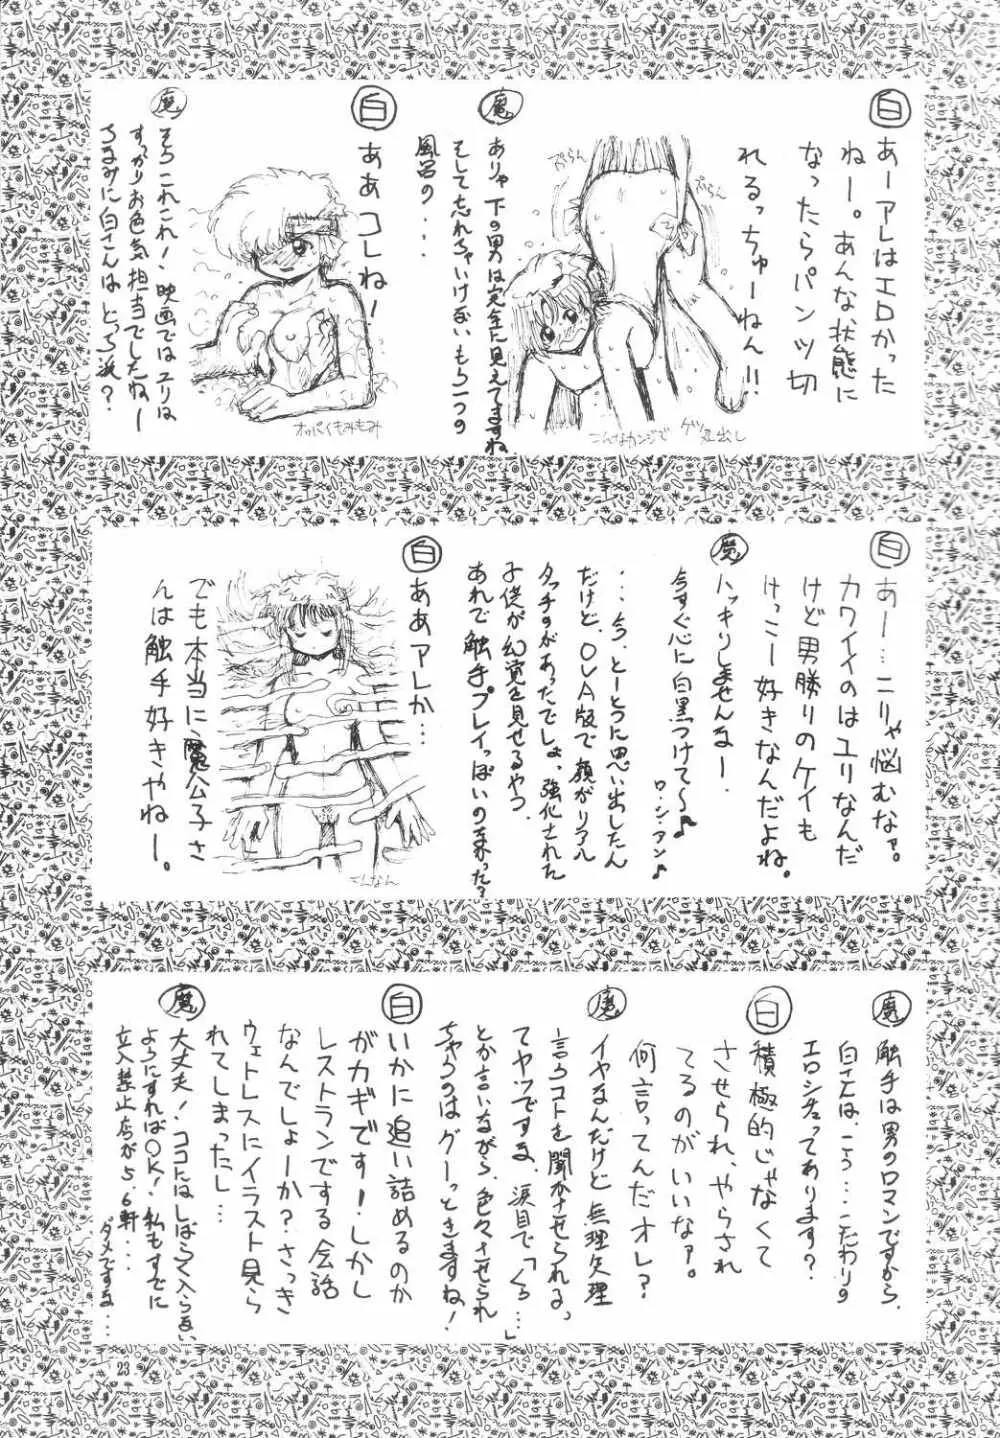 白
あーアレはエロかった
ねー。あんな状態に
なったらパンツ切
れるっちゅーねん!!
ぷらん
ぷらん
こんなカンジで
ゲツ突出し
魔
ありゃ下の男は完全に見えてますね
そして忘れちゃいけないもう一つの
風呂の...
白
ああコレねー
オッパイもみもみ
魔
そうこれこれ!映画ではユリは
すっかりお色気担当でしたねー
ちなみに白さんはどっち派?
白
あー...ニリャ悩むなァ。
カワイイのはユリなんだ
けど男勝りのケイも
けっこー好きなんだよね。
魔
ハッキリしませんなー
今すぐ心に白黒つけて〜♪
ロ・シ・ア・ン♪
...今、とーとつに思い出したん
だけど、OVA版で顔がリアル
タッチすがあったでしょ、強化された
子供が幻覚を見せるやつ、
あれで触手プレイっぽいの来った?
白
ああアレか...
こんなん
でも本当に魔公子さ
んは触手好きやねー。
魔
触手は男のロマンですから、
白さんは、こう...こだわりの
エロシチュってあります?
白
積極的じゃなくて
させられ、やらされ
てるのがいいなァ。
何言ってんだオレ?
魔
イヤなんだけど無理矢理
言うコトを聞かせられるっ
てヤツですな、涙目で「くっ...」
とか言いながら、色々させられ
ちゃうのはグーっときますね!
白
いかに追い詰めるのか
がカギです!しかし
レストランでする会話
なんでしょーか?さっき
ウェトレスにイラスト見ら
れてしまったし...
魔
大丈夫!ココにはしばらく入らない
ようにすればOK!私もすでに
立入禁止店が5、6軒...
ダメですな...
23